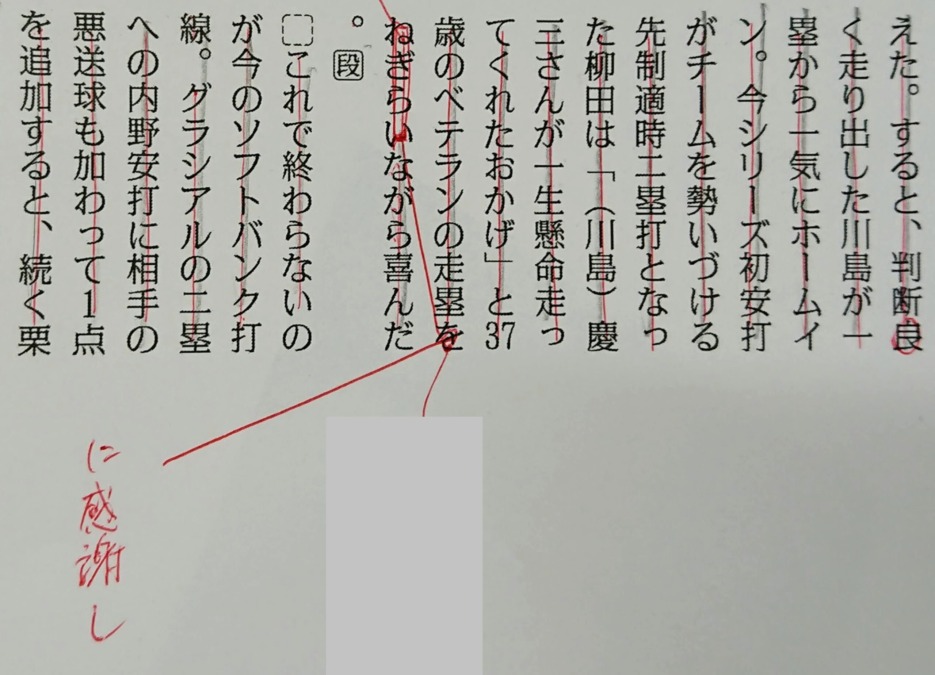 えた。すると、判断良
く走り出した川島が一
塁から一気にホームイ
ン。今シリーズ初安打
がチームを勢いづける
先制適時二塁打となっ
た柳田は「(川島)慶
三さんが一生懸命走っ
てくれたおかげ」と37
歳のベテランの走塁を
ねぎらいながら喜んだ
。段
これで終わらないの
が今のソフトバンク打
線。グラシアルの二塁
への内野安打に相手の
悪送球も加わって1点
を追加すると、続く栗
に感謝し